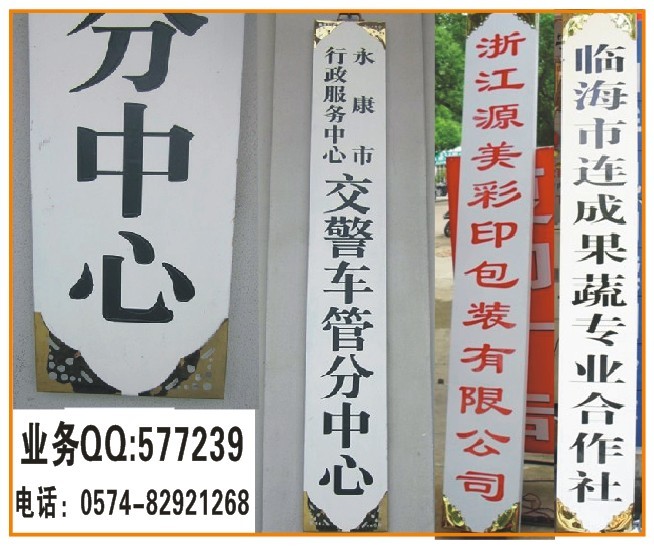 分中心
永康市
行政服务中心
交警车管分中心
浙江源美彩印包装有限公司
临海市连成果蔬专业合作社
业务QQ:577239
电话：0574-82921268